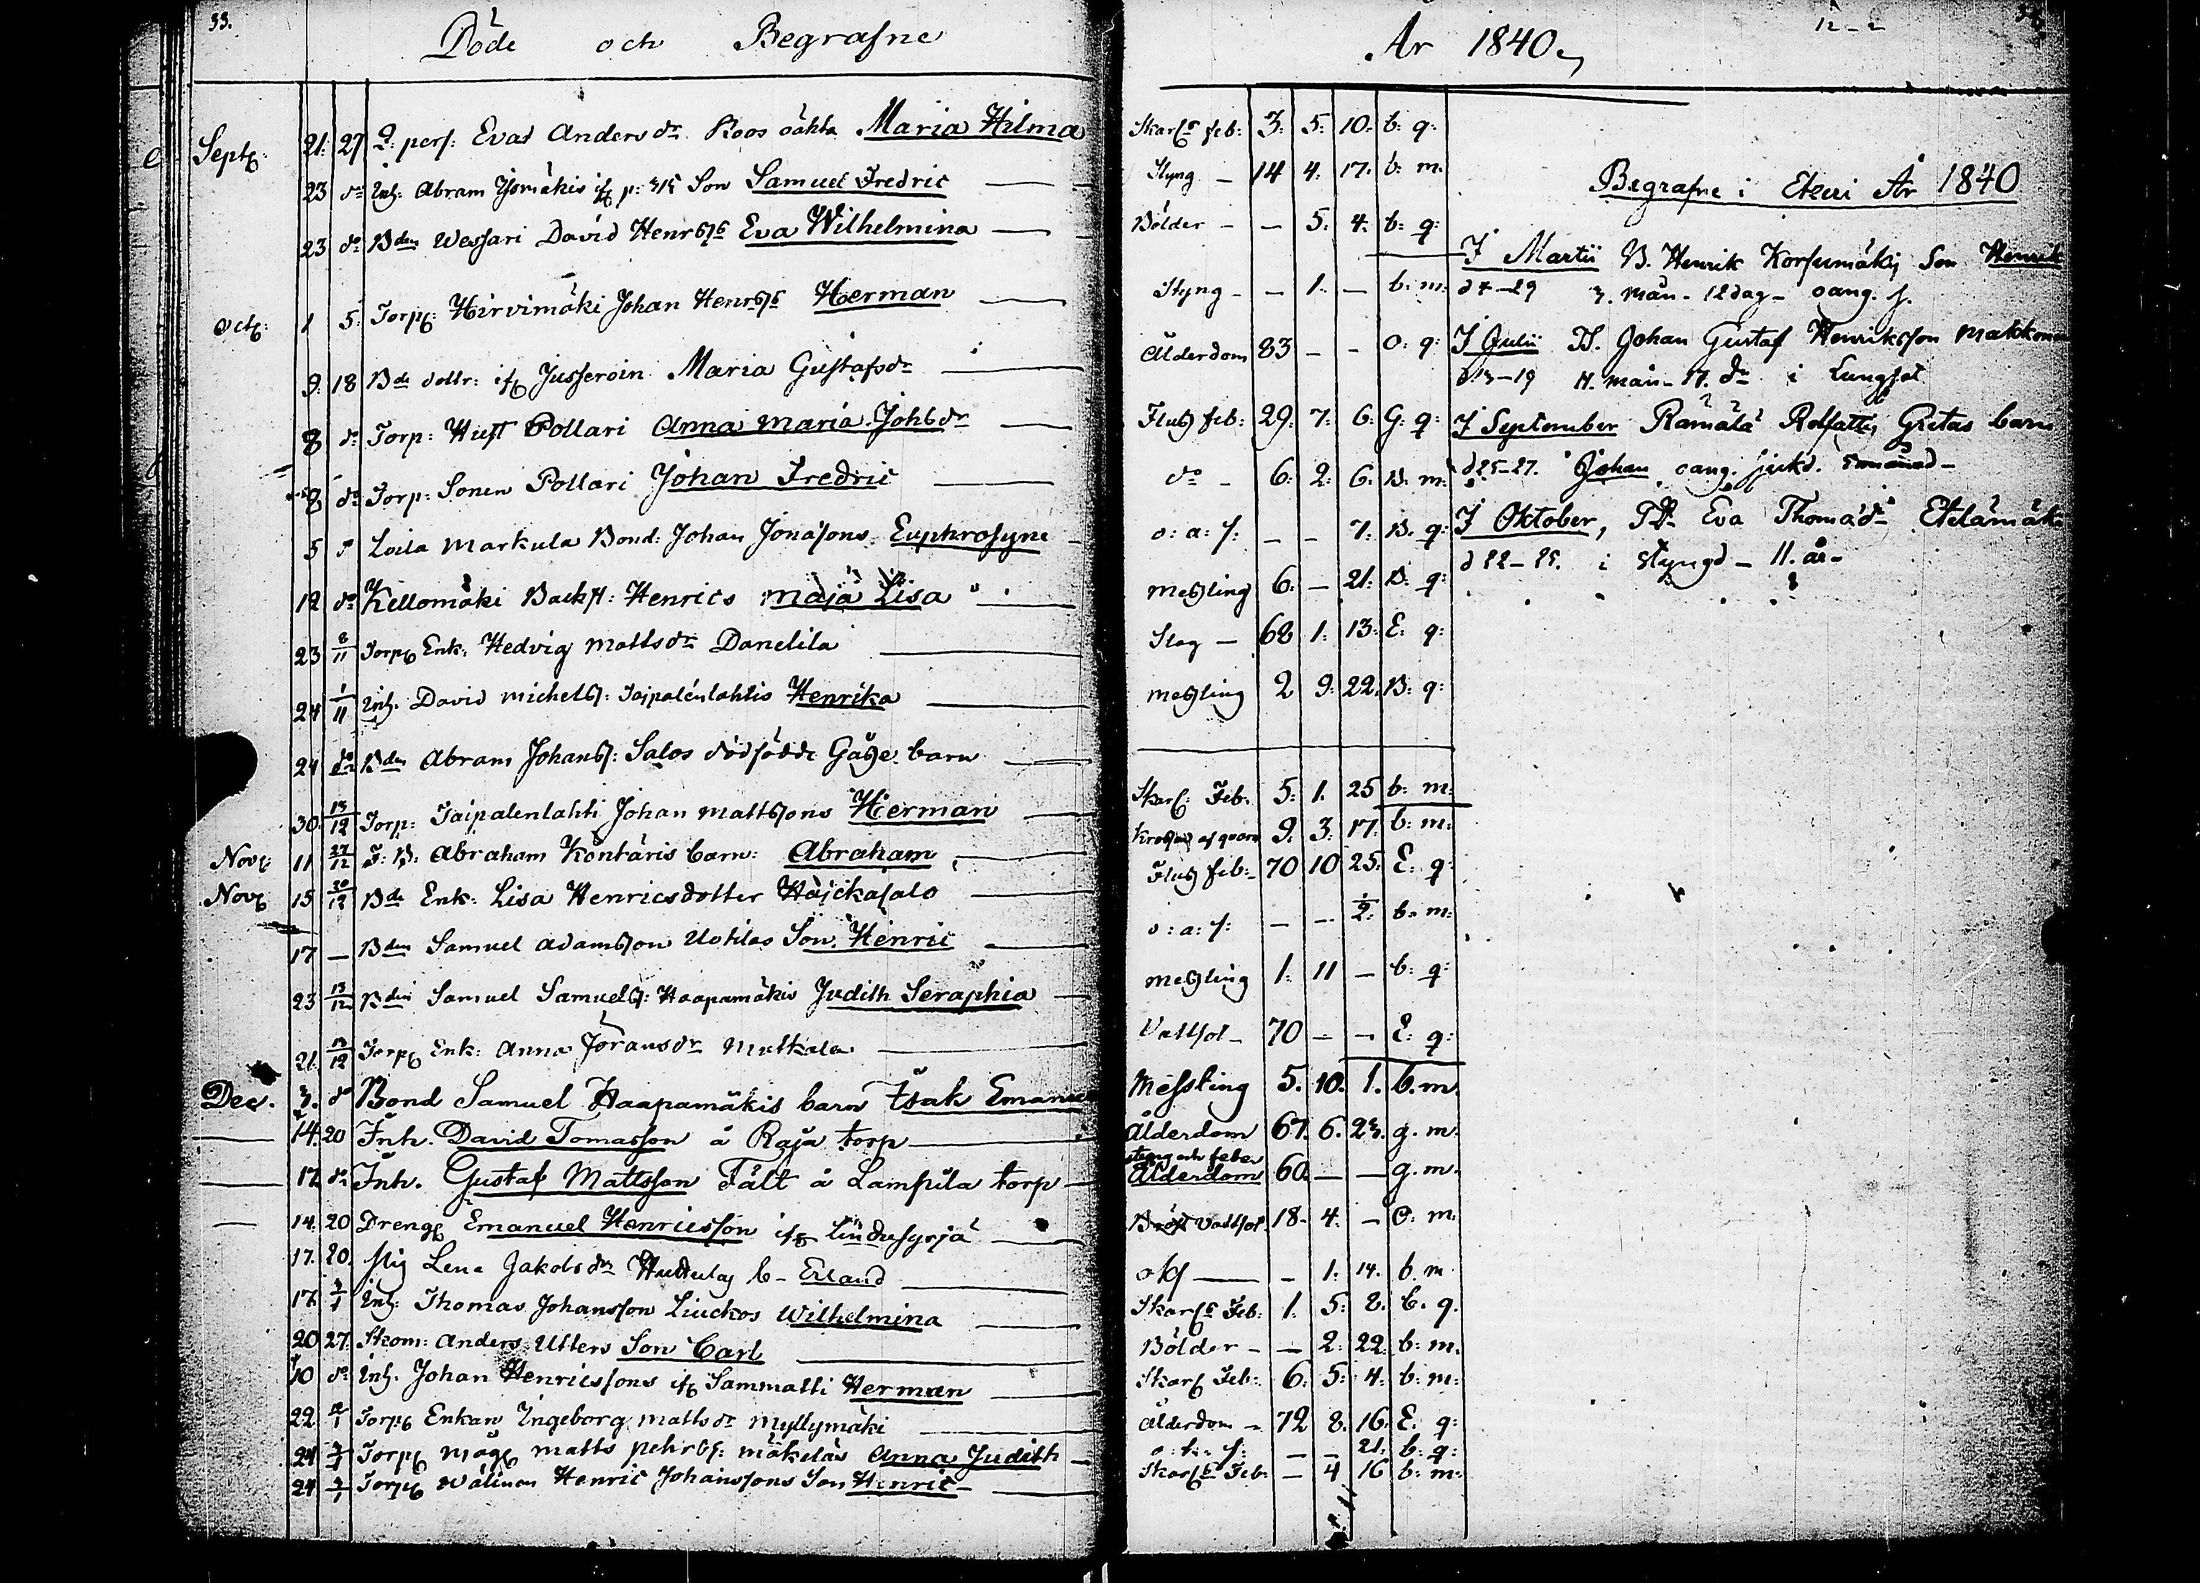 33.
Döde och Begrafne
År 1840
Sept: 21: 27 Q: pers: Evas Anders dr Roos oäkta Maria Hilma Skarls feb: 3: 5: 10: b: q:
23 do Inh: Abram Son Samuel Fredric Styng 14 4: 17: b: m:
23 do Bdn Wessari David Eva Wilhelmina Bölder — — 5: 4: b: q:
Oct: 1 5: Torp: Hirvimäki Johan Herman Styng — — 1. — b: m:
9: 18 Bde dottr: Maria Gustafsdr Ålderdom 83 — — O: q:
8 do Torp: Pollari Anna Maria Johsdr feb: 29: 7: 6: G: q:
8 do Torp: Sonen Pollari Johan Fredric do — 6: 2: 6: B: m:
5 do Loila Markula Bond: Johan Jonasons Euphrosyne o: a: s: — — 7: B: q:
12 do Kellomäki Backst: Henrics Maja Lisa Messling 6: — 21: B: q:
23 8/11 Torp Enk: Hedvig Mattsdr Danelila Slag — 68 1: 13: E: q:
24 1/11 Inh. David Michelss: Taipalenlahtis Henrika Messling 2 9: 22: B: q:
24 do Bdn Abram Johanss: Salos dödfödde barn
30: 13/12 Torp: Taipalenlahti Johan Mattssons Herman Skarl: Feb: 5: 1. 25 b: m:
Nov: 11 27/12 Abraham Köntäris barn: Abraham af qvarn 9: 3: 17: b: m:
Nov: 15 20/12 Bde Enk: Lisa Henricsdotter Häjckäsalo feb: 70 10 25: E: q:
17 — Bdn Samuel Adamsson Uotilas Son: Henric o: a: s: — — 1/2: b: m:
23 13/12 Bdn Samuel Samuelss: Haapamäkis Judith Seraphia Messling 1: 11 — b: q:
21. 13/12 Torp Enk: Anna Göransdr Matkala Vattsot — 70 — — E: q:
Dec. 3. do Bond Samuel Haapamäkis barn Isak Emanuel Messling 5. 10. 1. b. m.
14. 20 Inh. David Tomasson å Raja torp Ålderdom 67. 6. 23. g. m.
styng och feber
17 do Inh. Gustaf Mattsson Fält å Lampila torp Ålderdom 60. — — g. m.
14. 20 Dreng Emanuel Henricsson Vattsot 18. 4. — O: m:
17. 20. Pig Lena Jakobsdr b— Erland — 1. 14. b. m.
17. 3/1 Inh: Thomas Johansson Liuckos Wilhelmina Skarls Feb: 1. 5: 8. b. q.
20 27. Skom: Anders Utters Son Carl Bölder — — 2: 22. b: m.
10 do Inh. Johan Henricssons Sammatti Herman Skarl Feb: 6: 5: 4: b: m:
22. Torp Enkan Ingeborg Mattsdr Myllymäki Ålderdom — 72 8. 16. E. q:
24 3/1 Torp Måg Matts Pehrss: Mäkeläs Anna Judith — — 21: b: q:
24 3/1 Torp Wälimaa Henric Johanssons Son Henric Skarls Feb: — 4 16 b: m:
Begrafne i Etseri År 1840
I Martii B. Henrik Korsumäkis Son Henrik
d 7—29 3. mån— 12 dag— oang. s.
I Julii Johan Gustaf Henriksson Makkonen
d 13—19 11. mån— 17. do i Lungsot
I September Rämälä Gretas barn
d 25—27. Johan oang. sjukd.
I Oktober, Eva Thomasdr Etelämäki
d 22—25. i Styngd — 11. år—